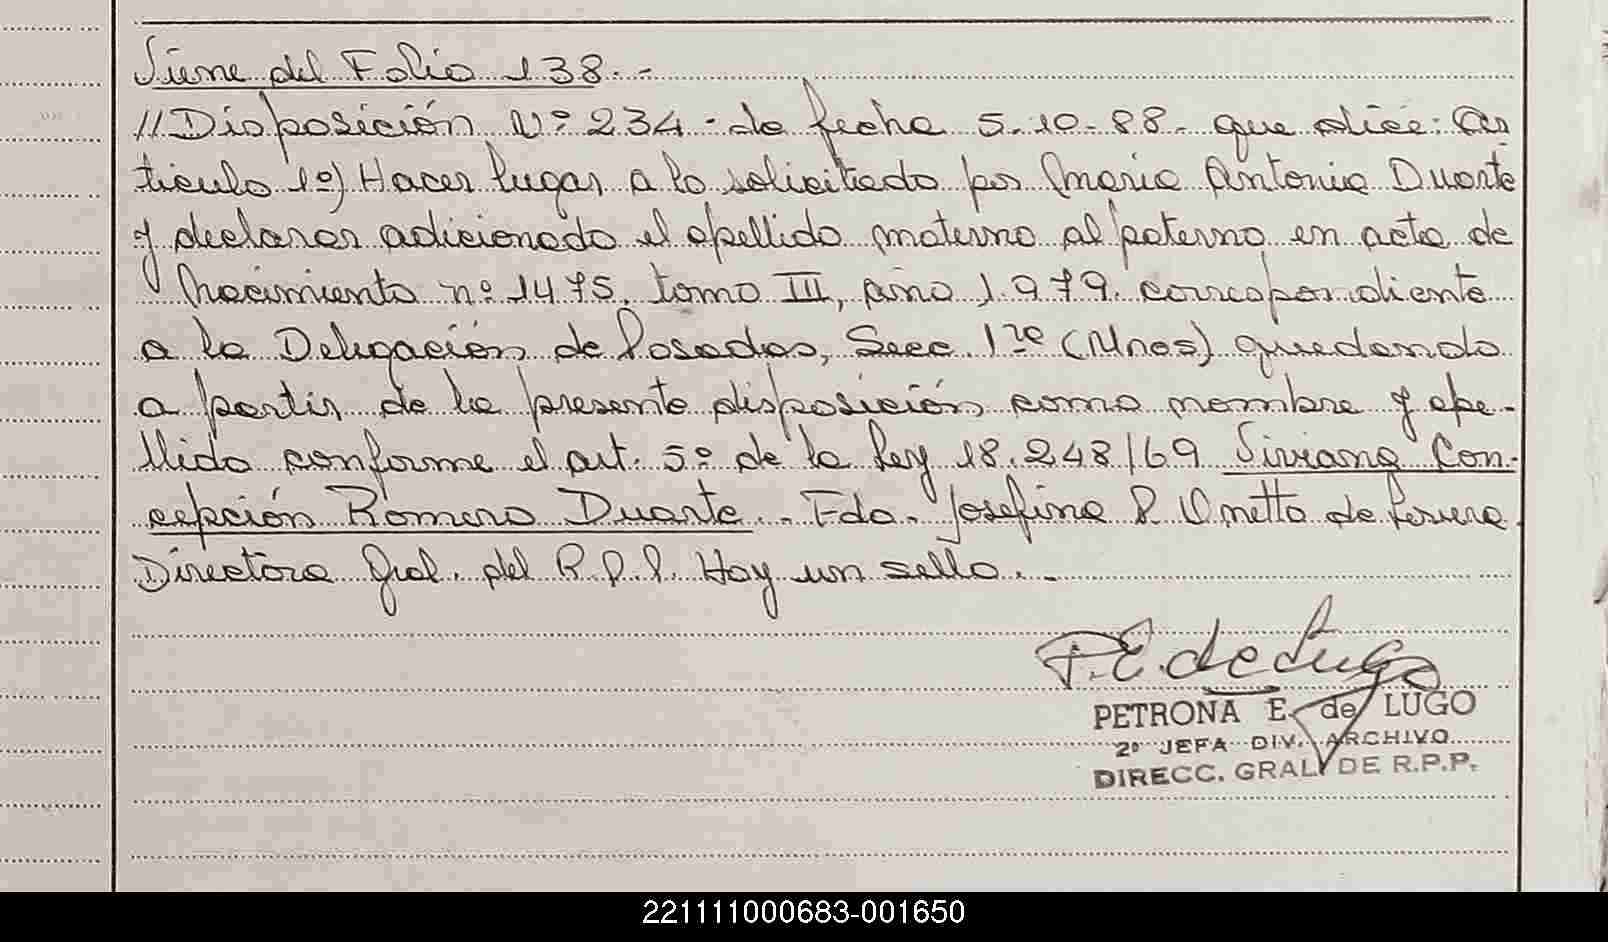 Viene del Folio 138.-
//Disposición Nº 234 - de fecha 5-10-88- que dice: Ar-
tículo 1º) Hacer lugar a lo solicitado por Maria Antonia Duarte
y declarar adicionado el apellido materno al paterno en acta de
Nacimiento nº 1475, tomo III, año 1.979. correspondiente
a la Delegación de Posadas, Secc. 1ra (Mnes) quedando
a partir de la presente disposición como nombre y ape-
llido conforme el art. 5º de la Ley 18.248/69 Viviana Con-
cepción Romero Duarte.. Fdo. Josefina P. Onetto de
Directora Gral. del R.P.P. Hay un sello.-
P.E. de Lugo
PETRONA E. de LUGO
2º JEFA DIV. ARCHIVO
DIRECC. GRAL. DE R.P.P.
221111000683-001650